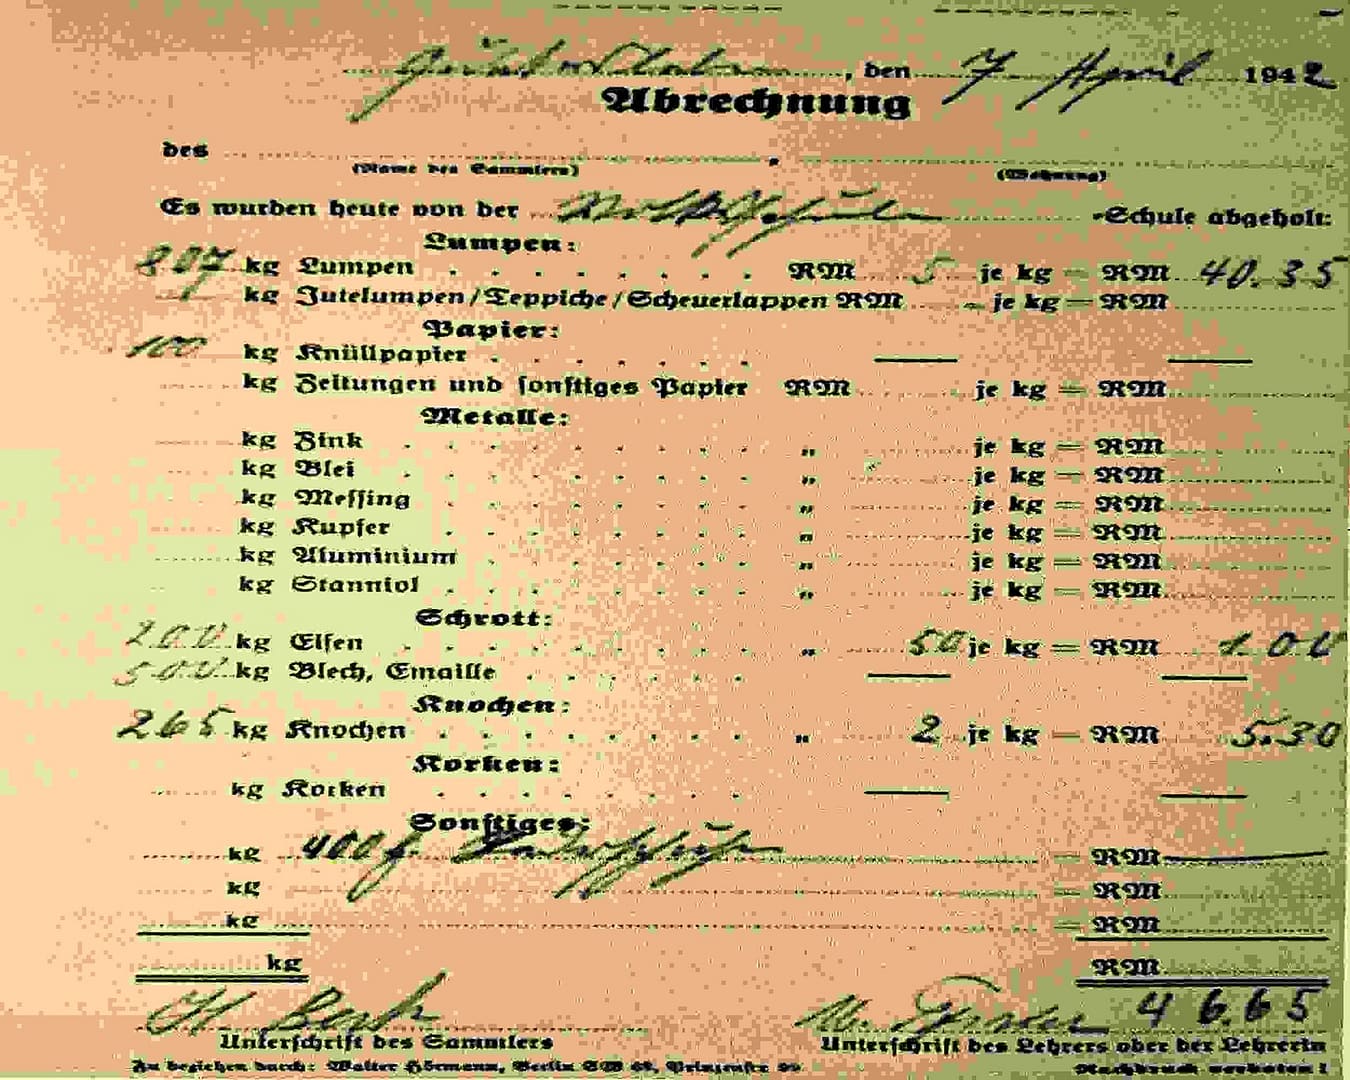 , den 7 April 1942
Abrechnung
des
(Name des Sammlers) (Wohnung)
Es wurden heute von der -Schule abgeholt:
Lumpen:
807 kg Lumpen . . . . . . . . RM 5 je kg = RM 40.35
kg Jutelumpen/Teppiche/Scheuerlappen RM je kg = RM
Papier:
100 kg Knüllpapier . . . . . . .
kg Zeitungen und sonstiges Papier RM je kg = RM
Metalle:
kg Zink . . . . . . . . . „ je kg = RM
kg Blei . . . . . . . . . „ je kg = RM
kg Messing . . . . . . . . „ je kg = RM
kg Kupfer . . . . . . . . „ je kg = RM
kg Aluminium . . . . . . . „ je kg = RM
kg Stanniol . . . . . . . . „ je kg = RM
Schrott:
200 kg Eisen . . . . . . . . . „ 50 je kg = RM 1.00
500 kg Blech, Emaille . . . . . .
Knochen:
265 kg Knochen . . . . . . . . „ 2 je kg = RM 5.30
Korken:
kg Korken . . . . . . . .
Sonstiges:
kg 400 = RM
kg = RM
kg = RM
kg RM
46.65
Unterschrift des Sammlers Unterschrift des Lehrers oder der Lehrerin
Zu beziehen durch: Walter Hörmann, Berlin SW Nachdruck verboten!